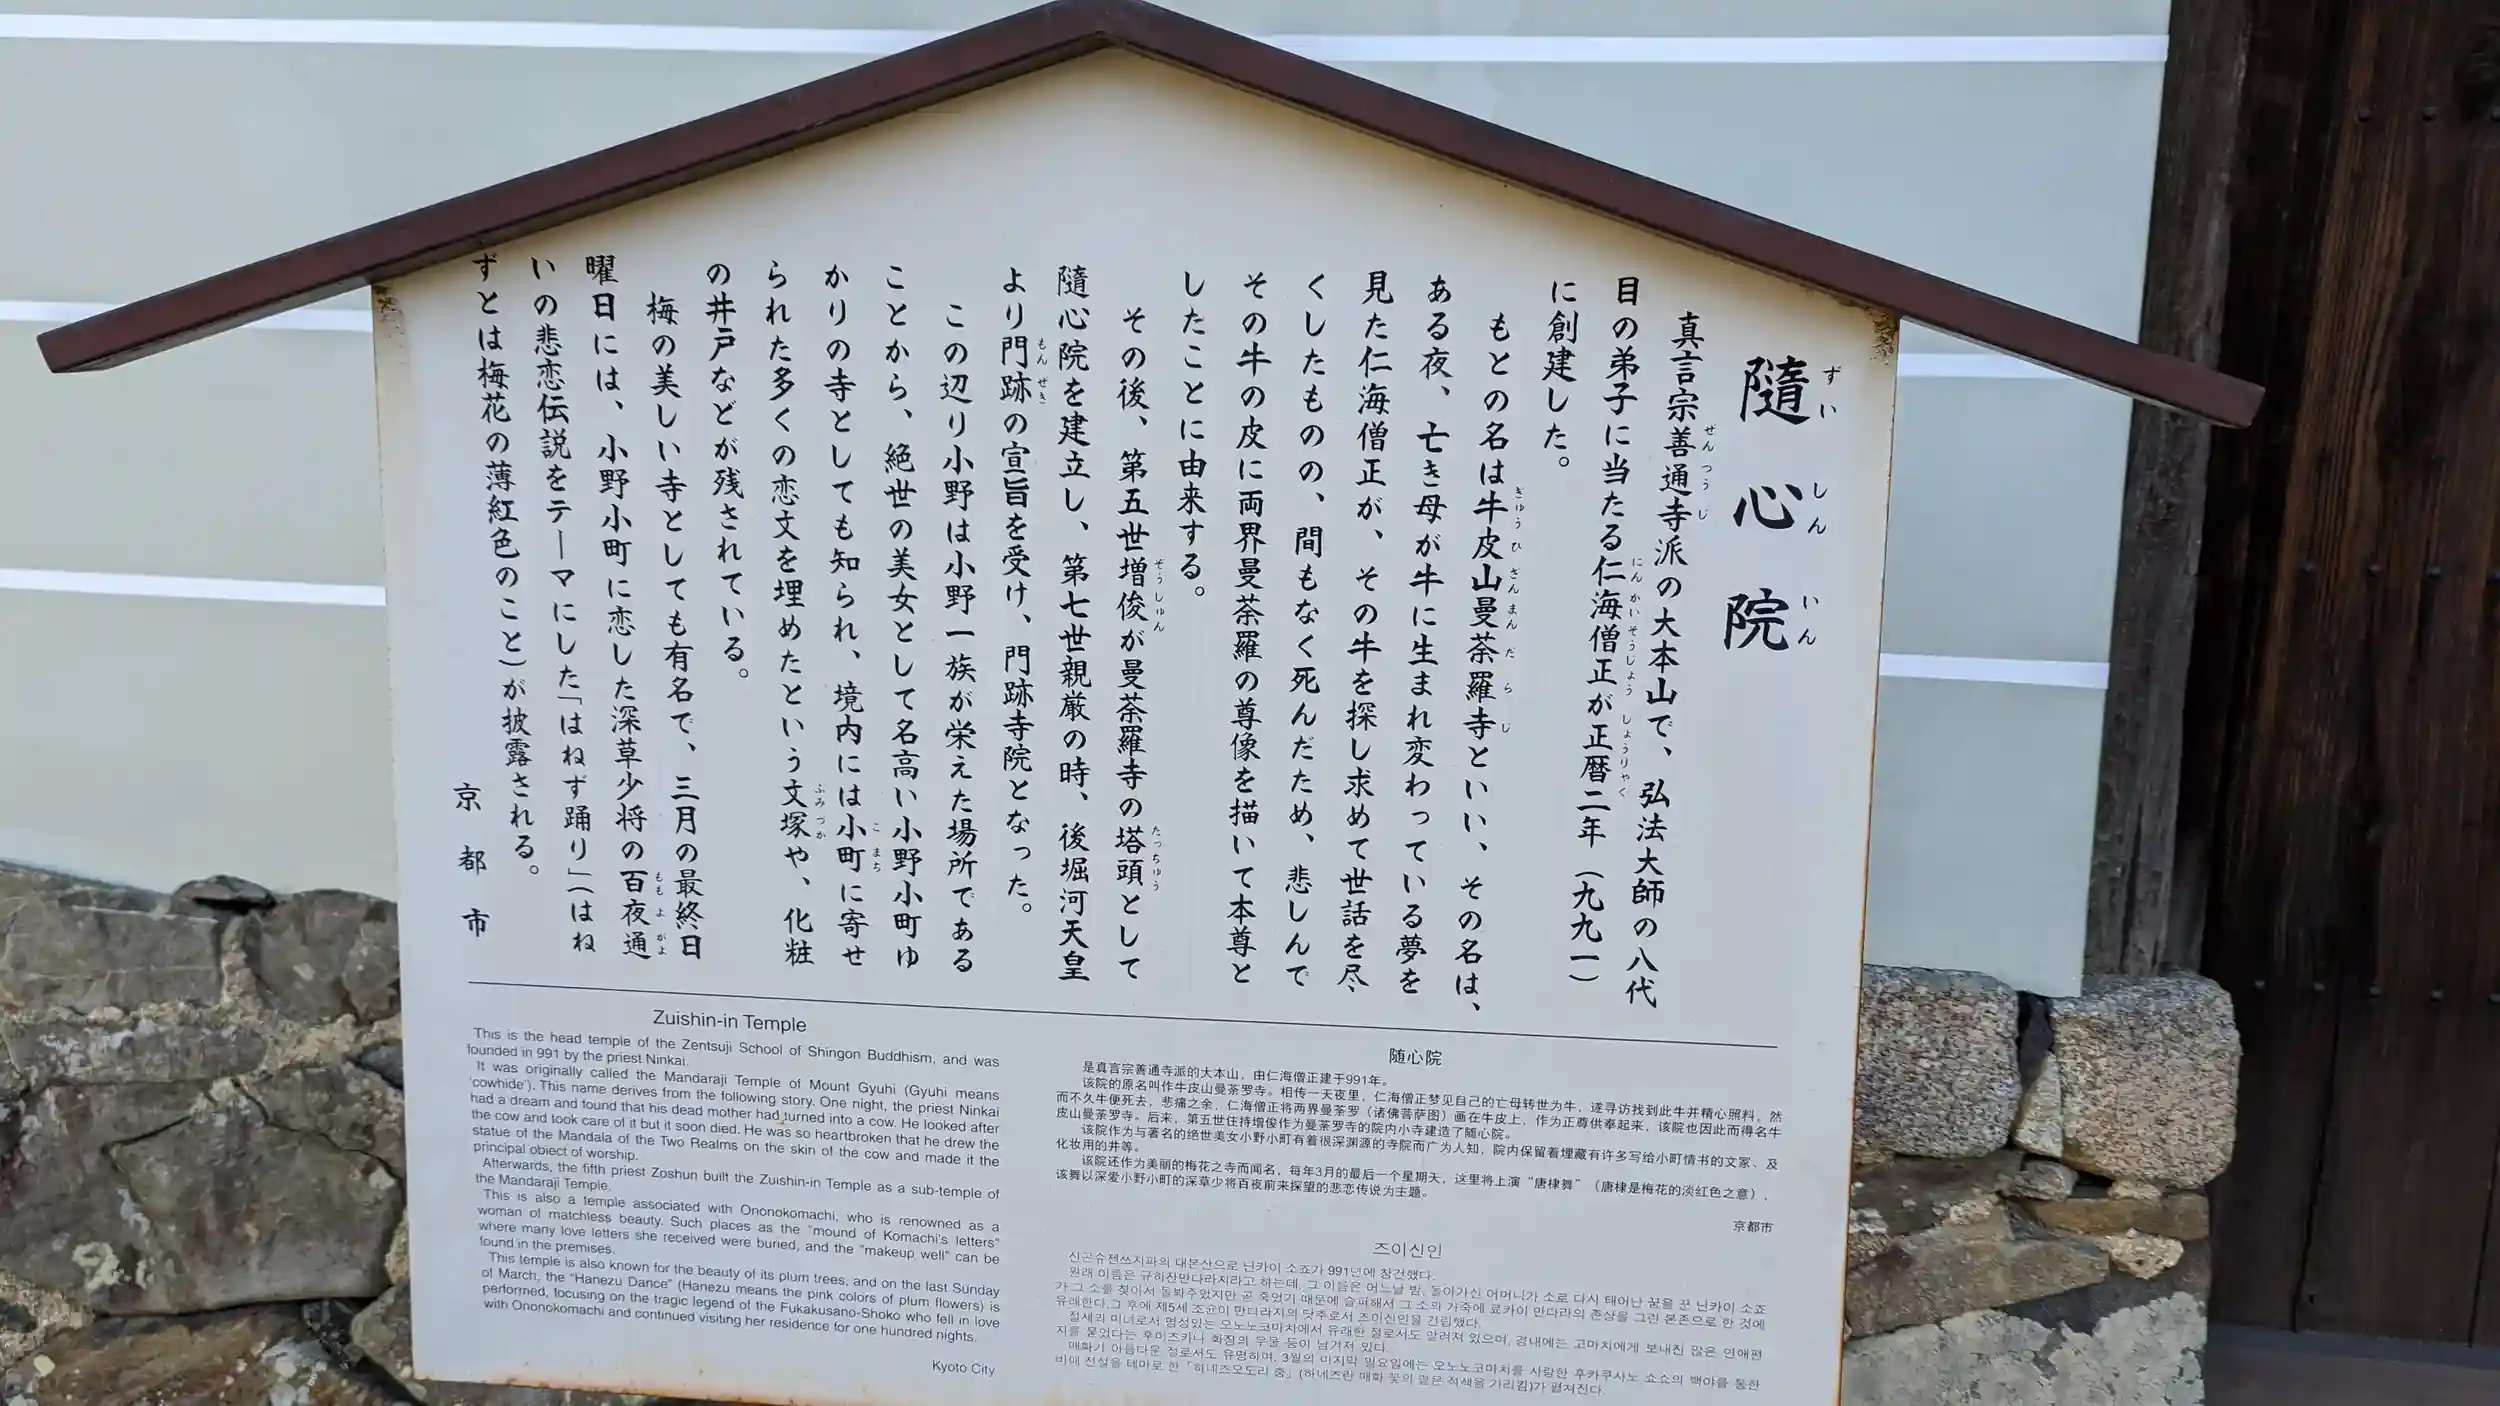 隨心院
ずいしんいん
真言宗善通寺派の大本山で、弘法大師の八代
目の弟子に当たる仁海僧正が正暦二年（九九一）
に創建した。
もとの名は牛皮山曼荼羅寺といい、その名は、
ある夜、亡き母が牛に生まれ変わっている夢を
見た仁海僧正が、その牛を探し求めて世話を尽
くしたものの、間もなく死んだため、悲しんで
その牛の皮に両界曼荼羅の尊像を描いて本尊と
したことに由来する。
その後、第五世増俊が曼荼羅寺の塔頭として
隨心院を建立し、第七世親厳の時、後堀河天皇
より門跡の宣旨を受け、門跡寺院となった。
この辺り小野は小野一族が栄えた場所である
ことから、絶世の美女として名高い小野小町ゆ
かりの寺としても知られ、境内には小町に寄せ
られた多くの恋文を埋めたという文塚や、化粧
の井戸などが残されている。
梅の美しい寺としても有名で、三月の最終日
曜日には、小野小町に恋した深草少将の百夜通
いの悲恋伝説をテーマにした「はねず踊り」（はね
ずとは梅花の薄紅色のこと）が披露される。
京都市
Zuishin-in Temple
This is the head temple of the Zentsuji School of Shingon Buddhism, and was
founded in 991 by the priest Ninkai.
It was originally called the Mandaraji Temple of Mount Gyuhi (Gyuhi means
'cowhide'). This name derives from the following story. One night, the priest Ninkai
had a dream and found that his dead mother had turned into a cow. He looked after
the cow and took care of it but it soon died. He was so heartbroken that he drew the
statue of the Mandala of the Two Realms on the skin of the cow and made it the
principal object of worship.
Afterwards, the fifth priest Zoshun built the Zuishin-in Temple as a sub-temple of
the Mandaraji Temple.
This is also a temple associated with Ononokomachi, who is renowned as a
woman of matchless beauty. Such places as the "mound of Komachi's letters"
where many love letters she received were buried, and the "makeup well" can be
found in the premises.
This temple is also known for the beauty of its plum trees, and on the last Sunday
of March, the "Hanezu Dance" (Hanezu means the pink colors of plum flowers) is
performed, focusing on the tragic legend of the Fukakusano-Shoko who fell in love
with Ononokomachi and continued visiting her residence for one hundred nights.
Kyoto City
随心院
是真言宗善通寺派的大本山，由仁海僧正建于991年。
该院的原名叫作牛皮山曼荼罗寺。相传一天夜里，仁海僧正梦见自己的亡母转世为牛，遂寻访找到此牛并精心照料，然
而不久牛便死去，悲痛之余，仁海僧正将两界曼荼罗（诸佛菩萨图）画在牛皮上，作为正尊供奉起来，该院也因此而得名牛
皮山曼荼罗寺。后来，第五世住持增俊作为曼荼罗寺的院内小寺建造了随心院。
该院作为与著名的绝世美女小野小町有着很深渊源的寺院而广为人知，院内保留着埋藏有许多写给小町情书的文冢、及
化妆用的井等。
该院还作为美丽的梅花之寺而闻名，每年3月的最后一个星期天，这里将上演“唐棣舞”（唐棣是梅花的淡红色之意），
该舞以深爱小野小町的深草少将百夜前来探望的悲恋传说为主题。
京都市
즈이신인
신곤슈젠쓰지파의 대본산으로 닌카이 소죠가 991년에 창건했다.
원래 이름은 규히잔만다라지라고 하는데, 그 이름은 어느날 밤, 돌아가신 어머니가 소로 다시 태어난 꿈을 꾼 닌카이 소죠
가 그 소를 찾아서 돌봐주었지만 곧 죽었기 때문에 슬퍼해서 그 소의 가죽에 료카이 만다라의 존상을 그린 본존으로 한 것에
유래한다.그 후에 제5세 조슌이 만다라지의 닷추로서 즈이신인을 건립했다.
절세의 미녀로서 명성있는 오노노코마치에서 유래한 절로서도 알려져 있으며, 경내에는 고마치에게 보내진 많은 연애편
지를 묻었다는 후미즈카나 화장의 우물 등이 남겨져 있다.
매화기 아름다운 절로서도 유명하며, 3월의 마지막 일요일에는 오노노코마치를 사랑한 후카쿠사노 쇼쇼의 백야를 통한
비애 전설을 테마로 한 「하네즈오도리 춤」(하네즈란 매화 꽃의 엷은 적색을 가리킴)가 펼쳐진다.